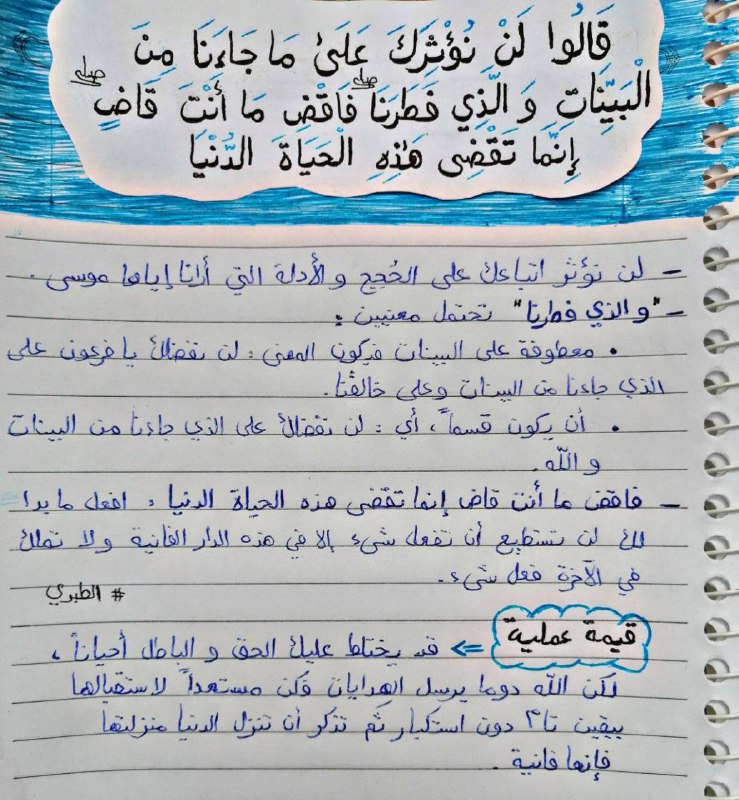 قَالُوا لَنْ نُؤْثِرَكَ عَلَىٰ مَا جَاءَنَا مِنَ
الْبَيِّنَاتِ وَ الَّذِي فَطَرَنَا ۖ فَاقْضِ مَا أَنْتَ قَاضٍ ۖ
إِنَّمَا تَقْضِى هَٰذِهِ الْحَيَاةَ الدُّنْيَا
- لن نؤثر اتباعك على الحُجج و الأدلة التي أرانا إياها موسى .
- "و الذي فطرنا" تحتمل معنيين :
• معطوفة على البينات فيكون المعنى : لن نفضلك يا فرعون على
الذي جاءنا من البينات وعلى خالقنا.
• أن يكون قسماً ، أي : لن نفضلك على الذي جاءنا من البينات
و الله .
- فاقض ما أنت قاض إنما تقضى هذه الحياة الدنيا : افعل ما بدا
لك لن تستطيع أن تفعل شيء إلا في هذه الدار الفانية ولا تملك
في الآخرة فعل شيء .
# الطبري
قيمة عملية => قد يختلط عليك الحق و الباطل أحياناً ،
لكن الله دوما يرسل الهدايات فكن مستعداً لاستقبالها
بيقين تام دون استكبار ثم تذكر أن تنزل الدنيا منزلتها
فإنها فانية .